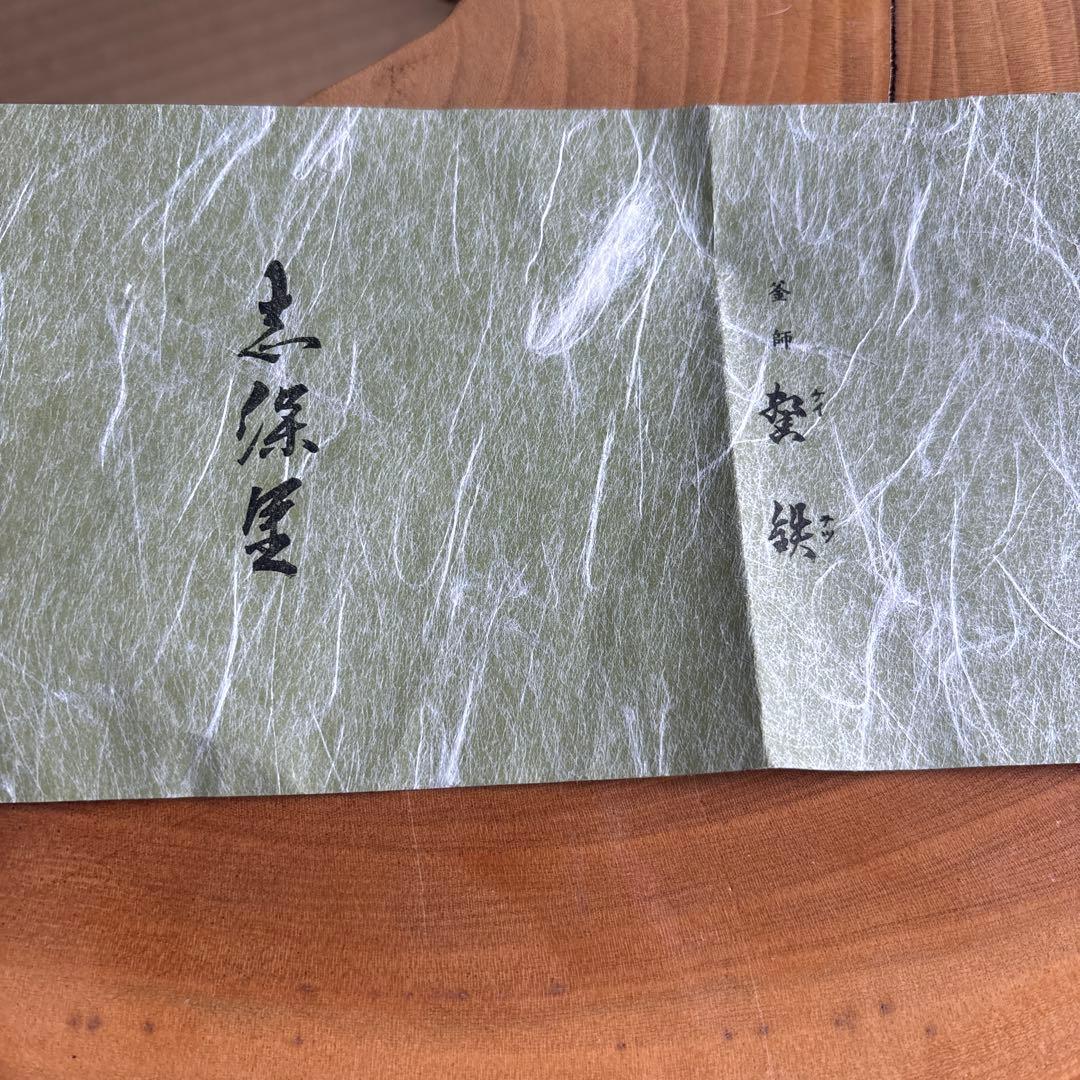 釜師 鉄
ケイ テツ
志保里